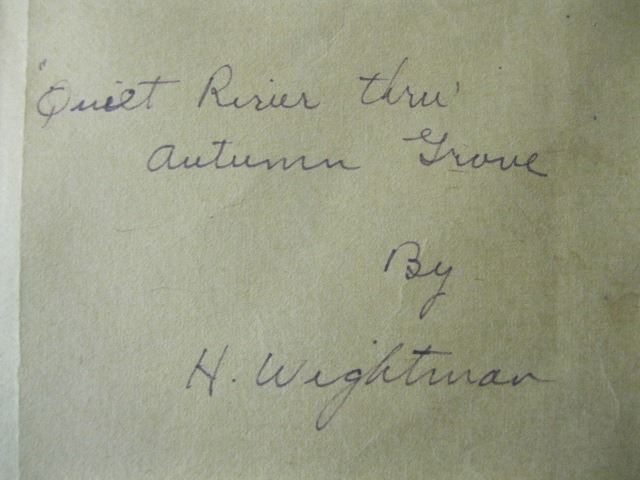 "Quiet River thru'
Autumn Grove
By
H. Wightman